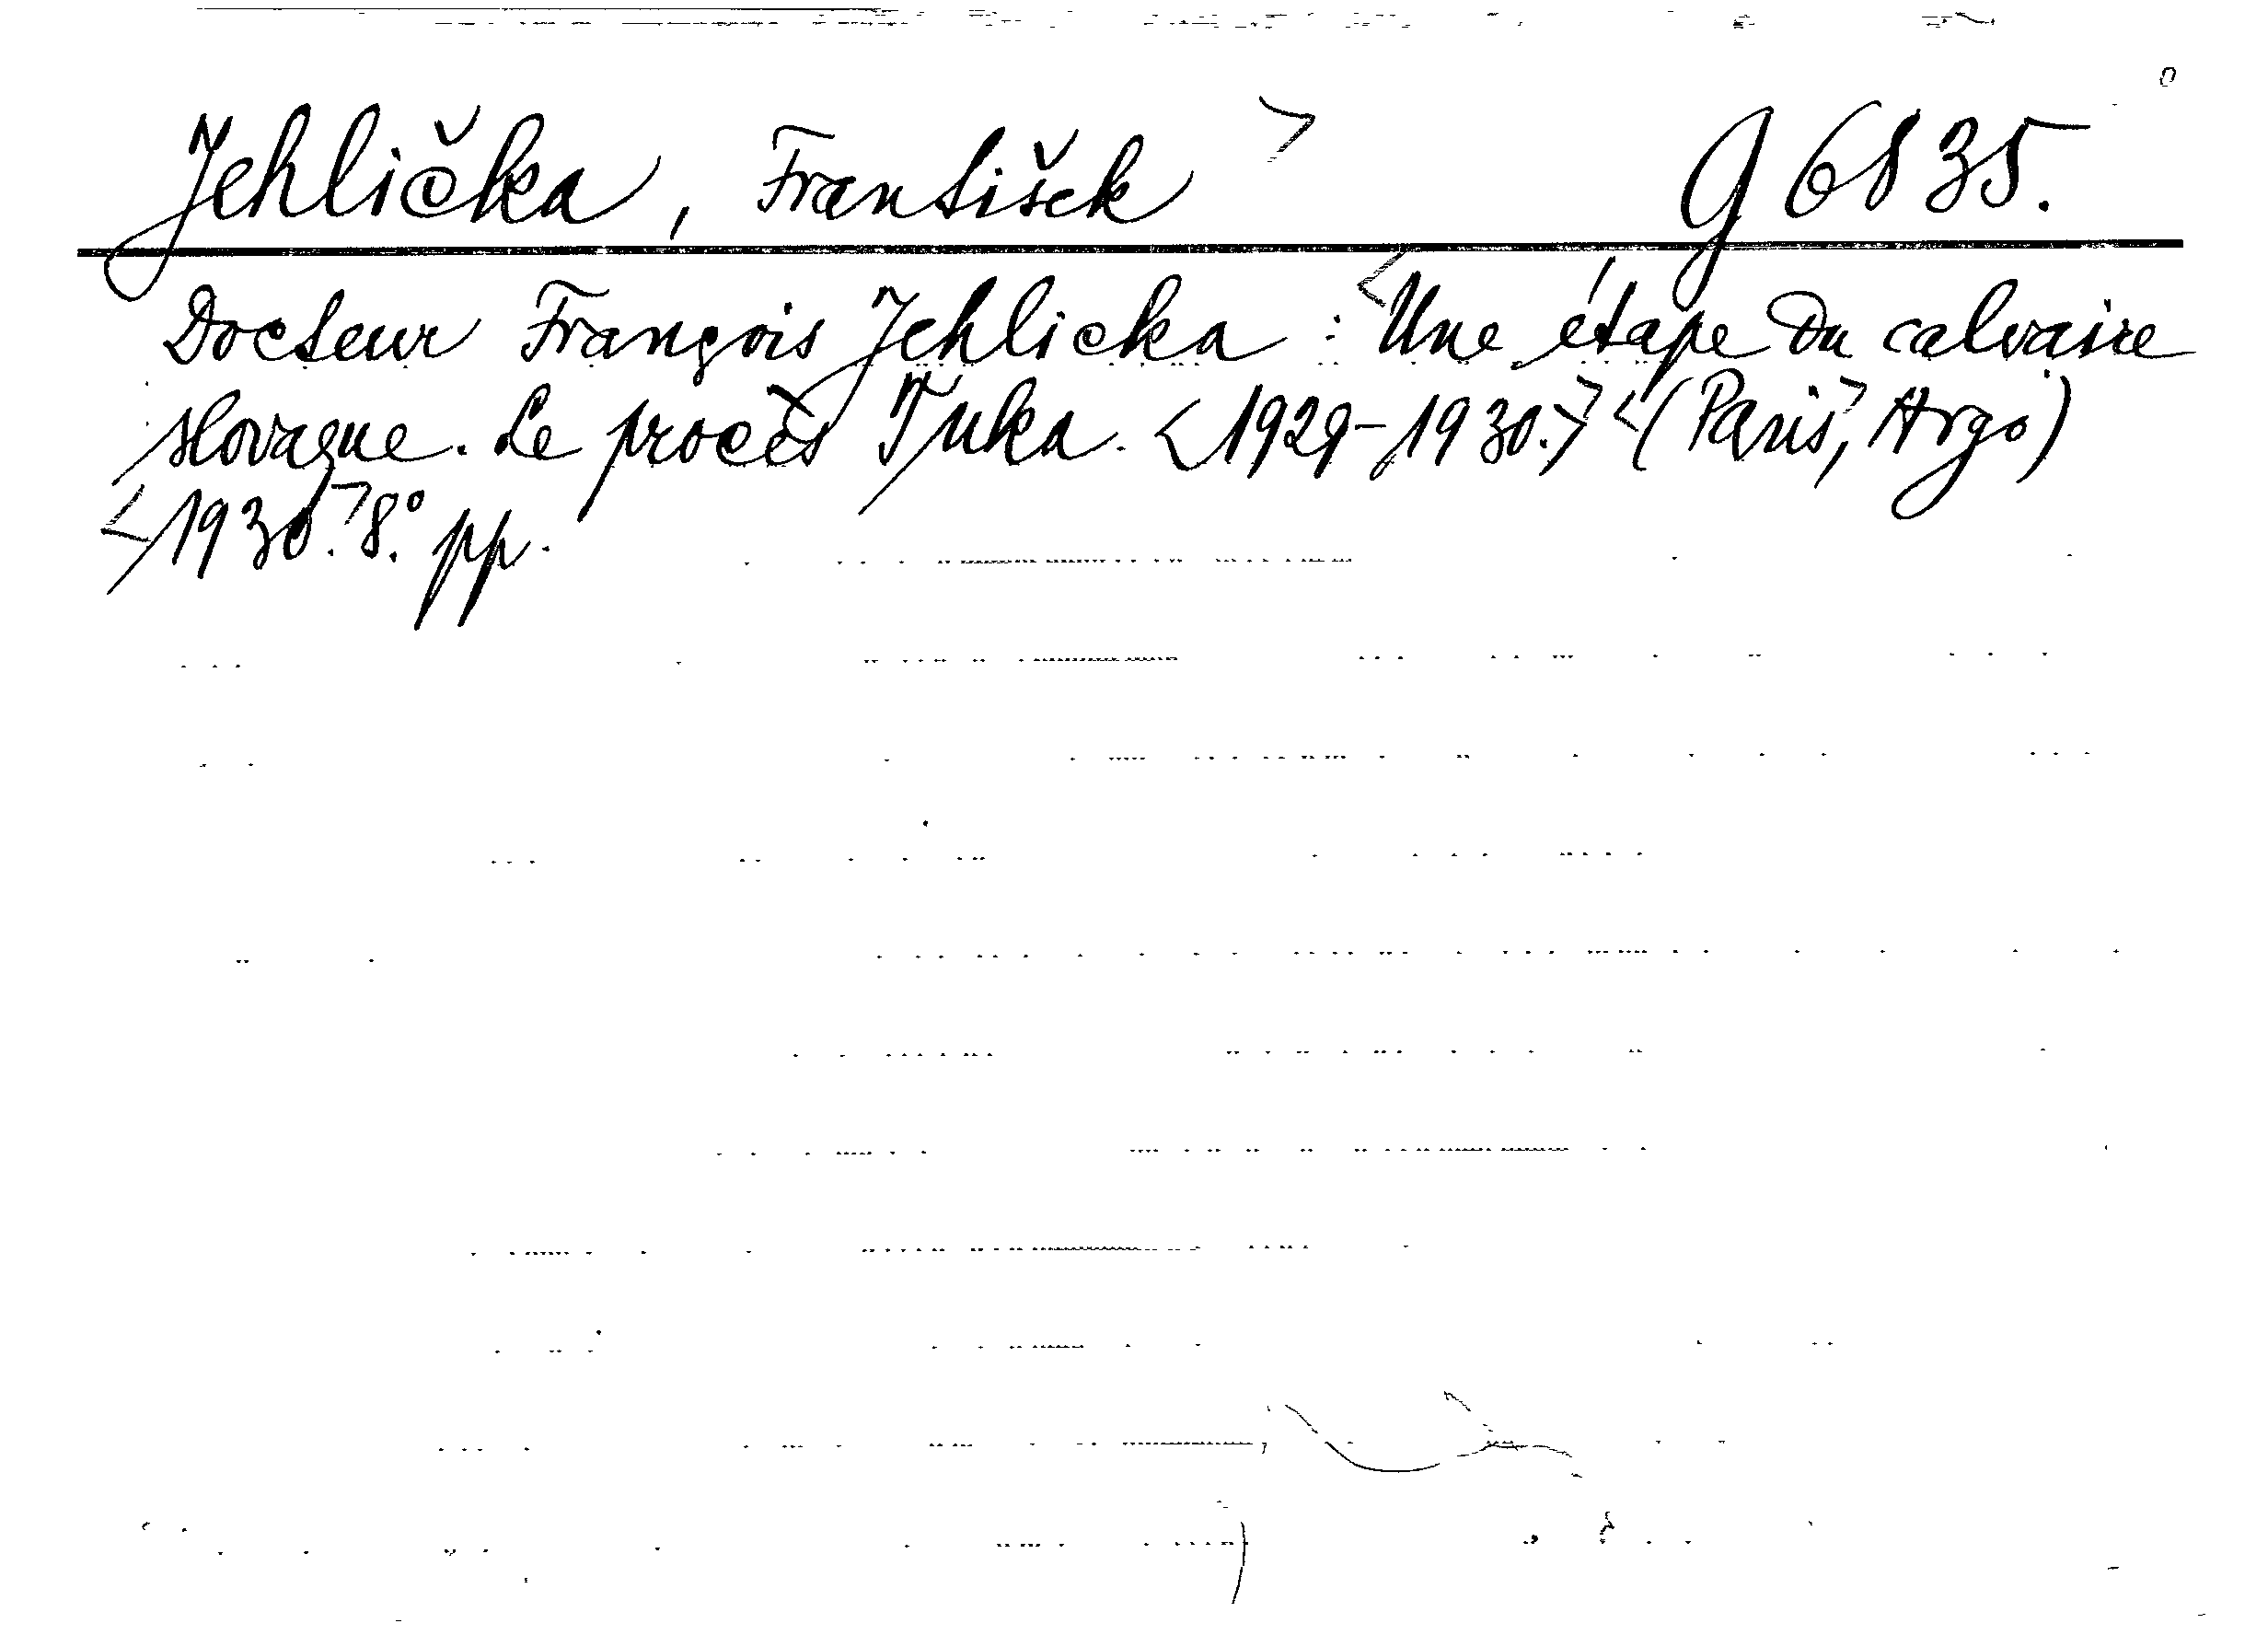 Jehlička, František> G 6835.
Docteur François Jehlicka : <Une étape du calvaire
slovaque. Le procès Tuka. <1929-1930.> <(Paris,> Argo)
<1930.> 8.° pp.